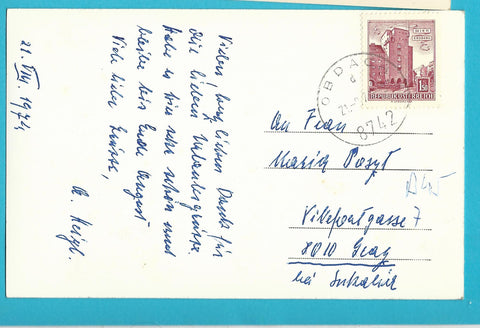 21. VIII. 1974
Vielen, lieben Dank für
die lieben Urlaubsgrüsse.
Habe es hier sehr schön und
bleibe bis Ende August
Viele liebe Grüsse,
A. Heigl.
WIEN
ERDBERG
1S
REPUBLIK ÖSTERREICH
OBDACH
8742
An Frau
Maria
Villefortgasse 7
8010 Graz
bei